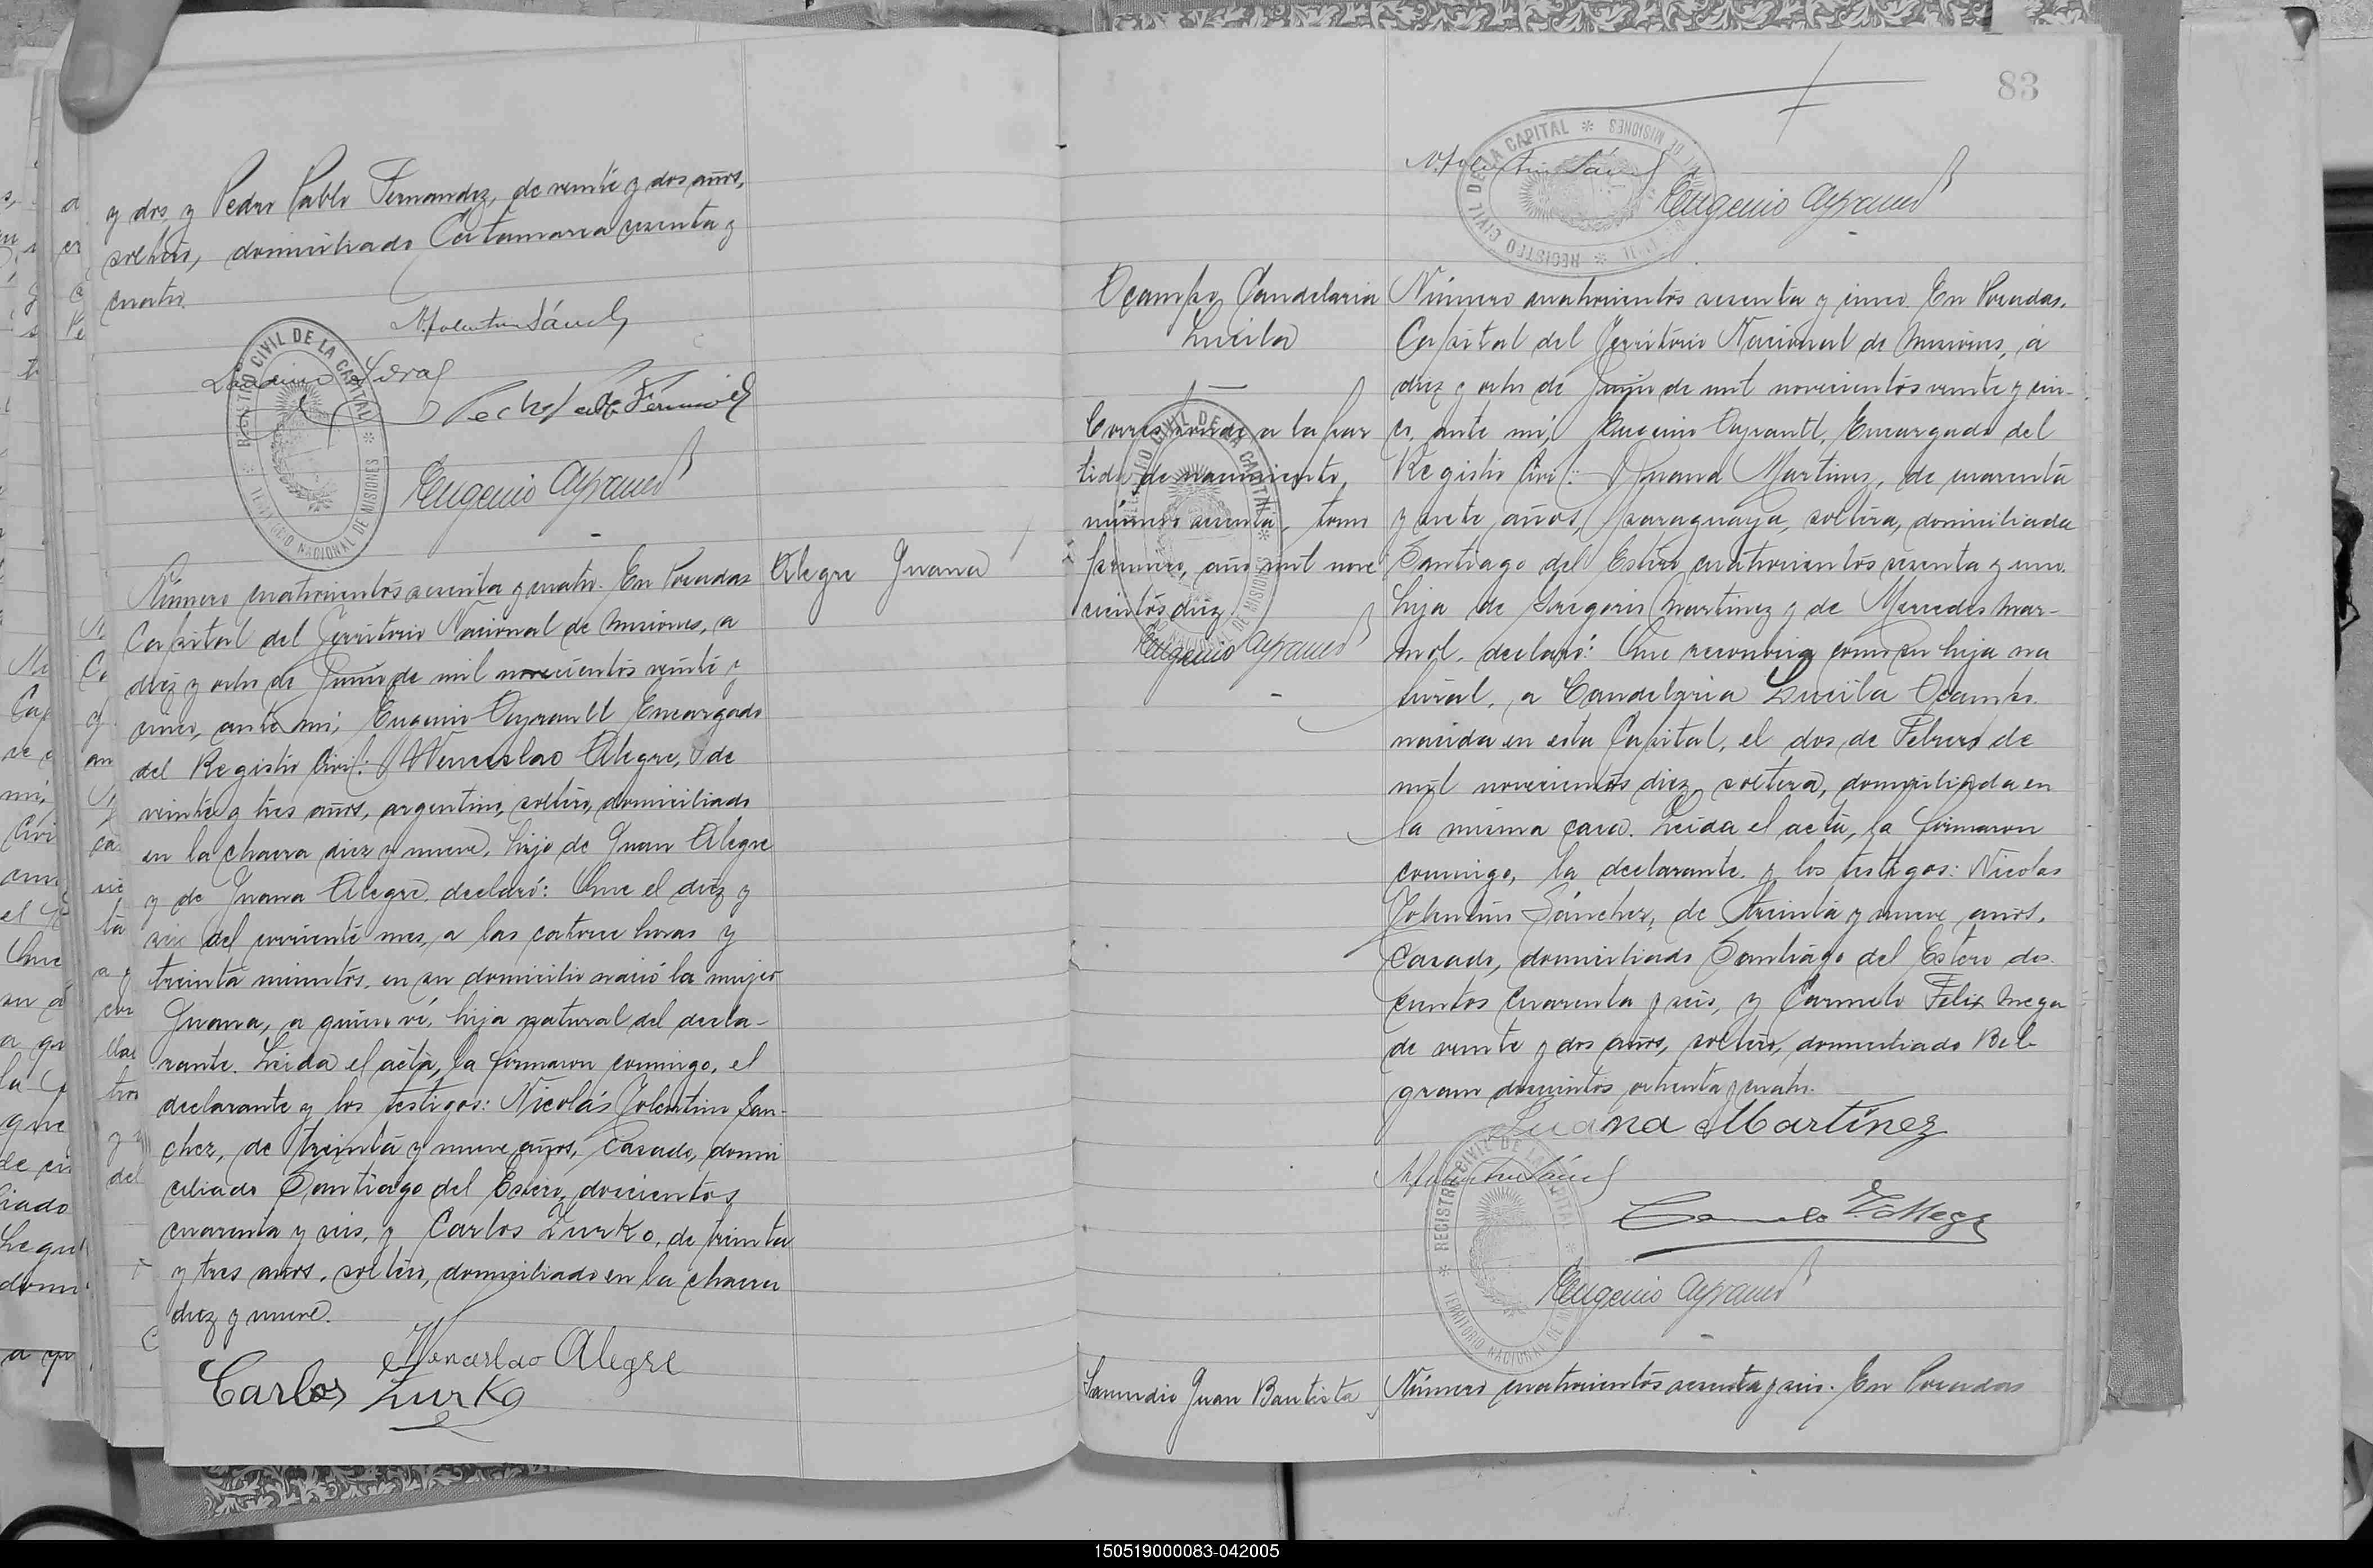 y dos, y Pedro Pablo Fernandez, de veinte y dos años,
soltero, domiciliado Catamarca sesenta y
cuatro.
REGISTRO CIVIL DE LA CAPITAL
TERRITORIO NACIONAL DE MISIONES
Eugenio Ayrault
Alegre Juana
Número cuatrocientos sesenta y cuatro. En Posadas
Capital del Territorio Nacional de Misiones, a
diez y ocho de Junio de mil novecientos veinte y
cinco, ante mi, Eugenio Ayrault Encargado
del Registro Civil: Wenceslao Alegre, de
veinte y tres años, argentino, soltero, domiciliado
en la chacra diez y nueve, hijo de Juan Alegre
y de Juana Alegre, declaró: Que el diez y
seis del corriente mes, a las catorce horas y
treinta minutos, en su domicilio nació la mujer
Juana, a quien ví, hija natural del decla-
rante. Leida el acta, la firmaron conmigo, el
declarante y los testigos: Nicolás Tolentino San-
chez, de treinta y nueve años, casado, domi
ciliado Santiago del Estero, doscientos
cuarenta y seis, y Carlos Zurko, de treinta
y tres años, soltero, domiciliado en la chacra
diez y nueve.
Wenceslao Alegre
Carlos Zurko
83
REGISTRO CIVIL DE LA CAPITAL
N. Tolentino Sánch
Eugenio Ayrault
Ocampo, Candelaria
Lucila
Corresponde a la par
tida de nacimiento,
número sesenta, tomo
primero, año mil nove
cientos diez
Eugenio Ayrault
Número cuatrocientos sesenta y cinco. En Posadas,
Capital del Territorio Nacional de Misiones, a
diez y ocho de Junio de mil novecientos veinte y cin-
co, ante mi, Eugenio Ayrault, Encargado del
Registro Civil: Juana Martinez, de cuarenta
y siete años, paraguaya, soltera, domiciliada
Santiago del Estero cuatrocientos sesenta y uno,
hija de Gregorio Martinez y de Mercedes Mar-
mol, declaró: Que reconocia como su hija na
tural, a Candelaria Lucila Ocampo,
nacida en esta Capital, el dos de Febrero de
mil novecientos diez, soltera, domiciliada en
la misma casa. Leida el acta, la firmaron
conmigo, la declarante y los testigos: Nicolas
Tolentino Sánchez, de treinta y nueve años,
casado, domiciliado Santiago del Estero dos
cientos cuarenta y seis, y Carmelo Felix Mega
de veinte y dos años, soltero, domiciliado Bel
grano doscientos ochenta y cuatro.
Juana Martínez
N. Tolentino Sánch
Carmelo F. Mega
REGISTRO CIVIL DE LA CAPITAL
TERRITORIO NACIONAL DE MISIONES
Eugenio Ayrault
Samudio Juan Bautista
Número cuatrocientos sesenta y seis. En Posadas
150519000083-042005